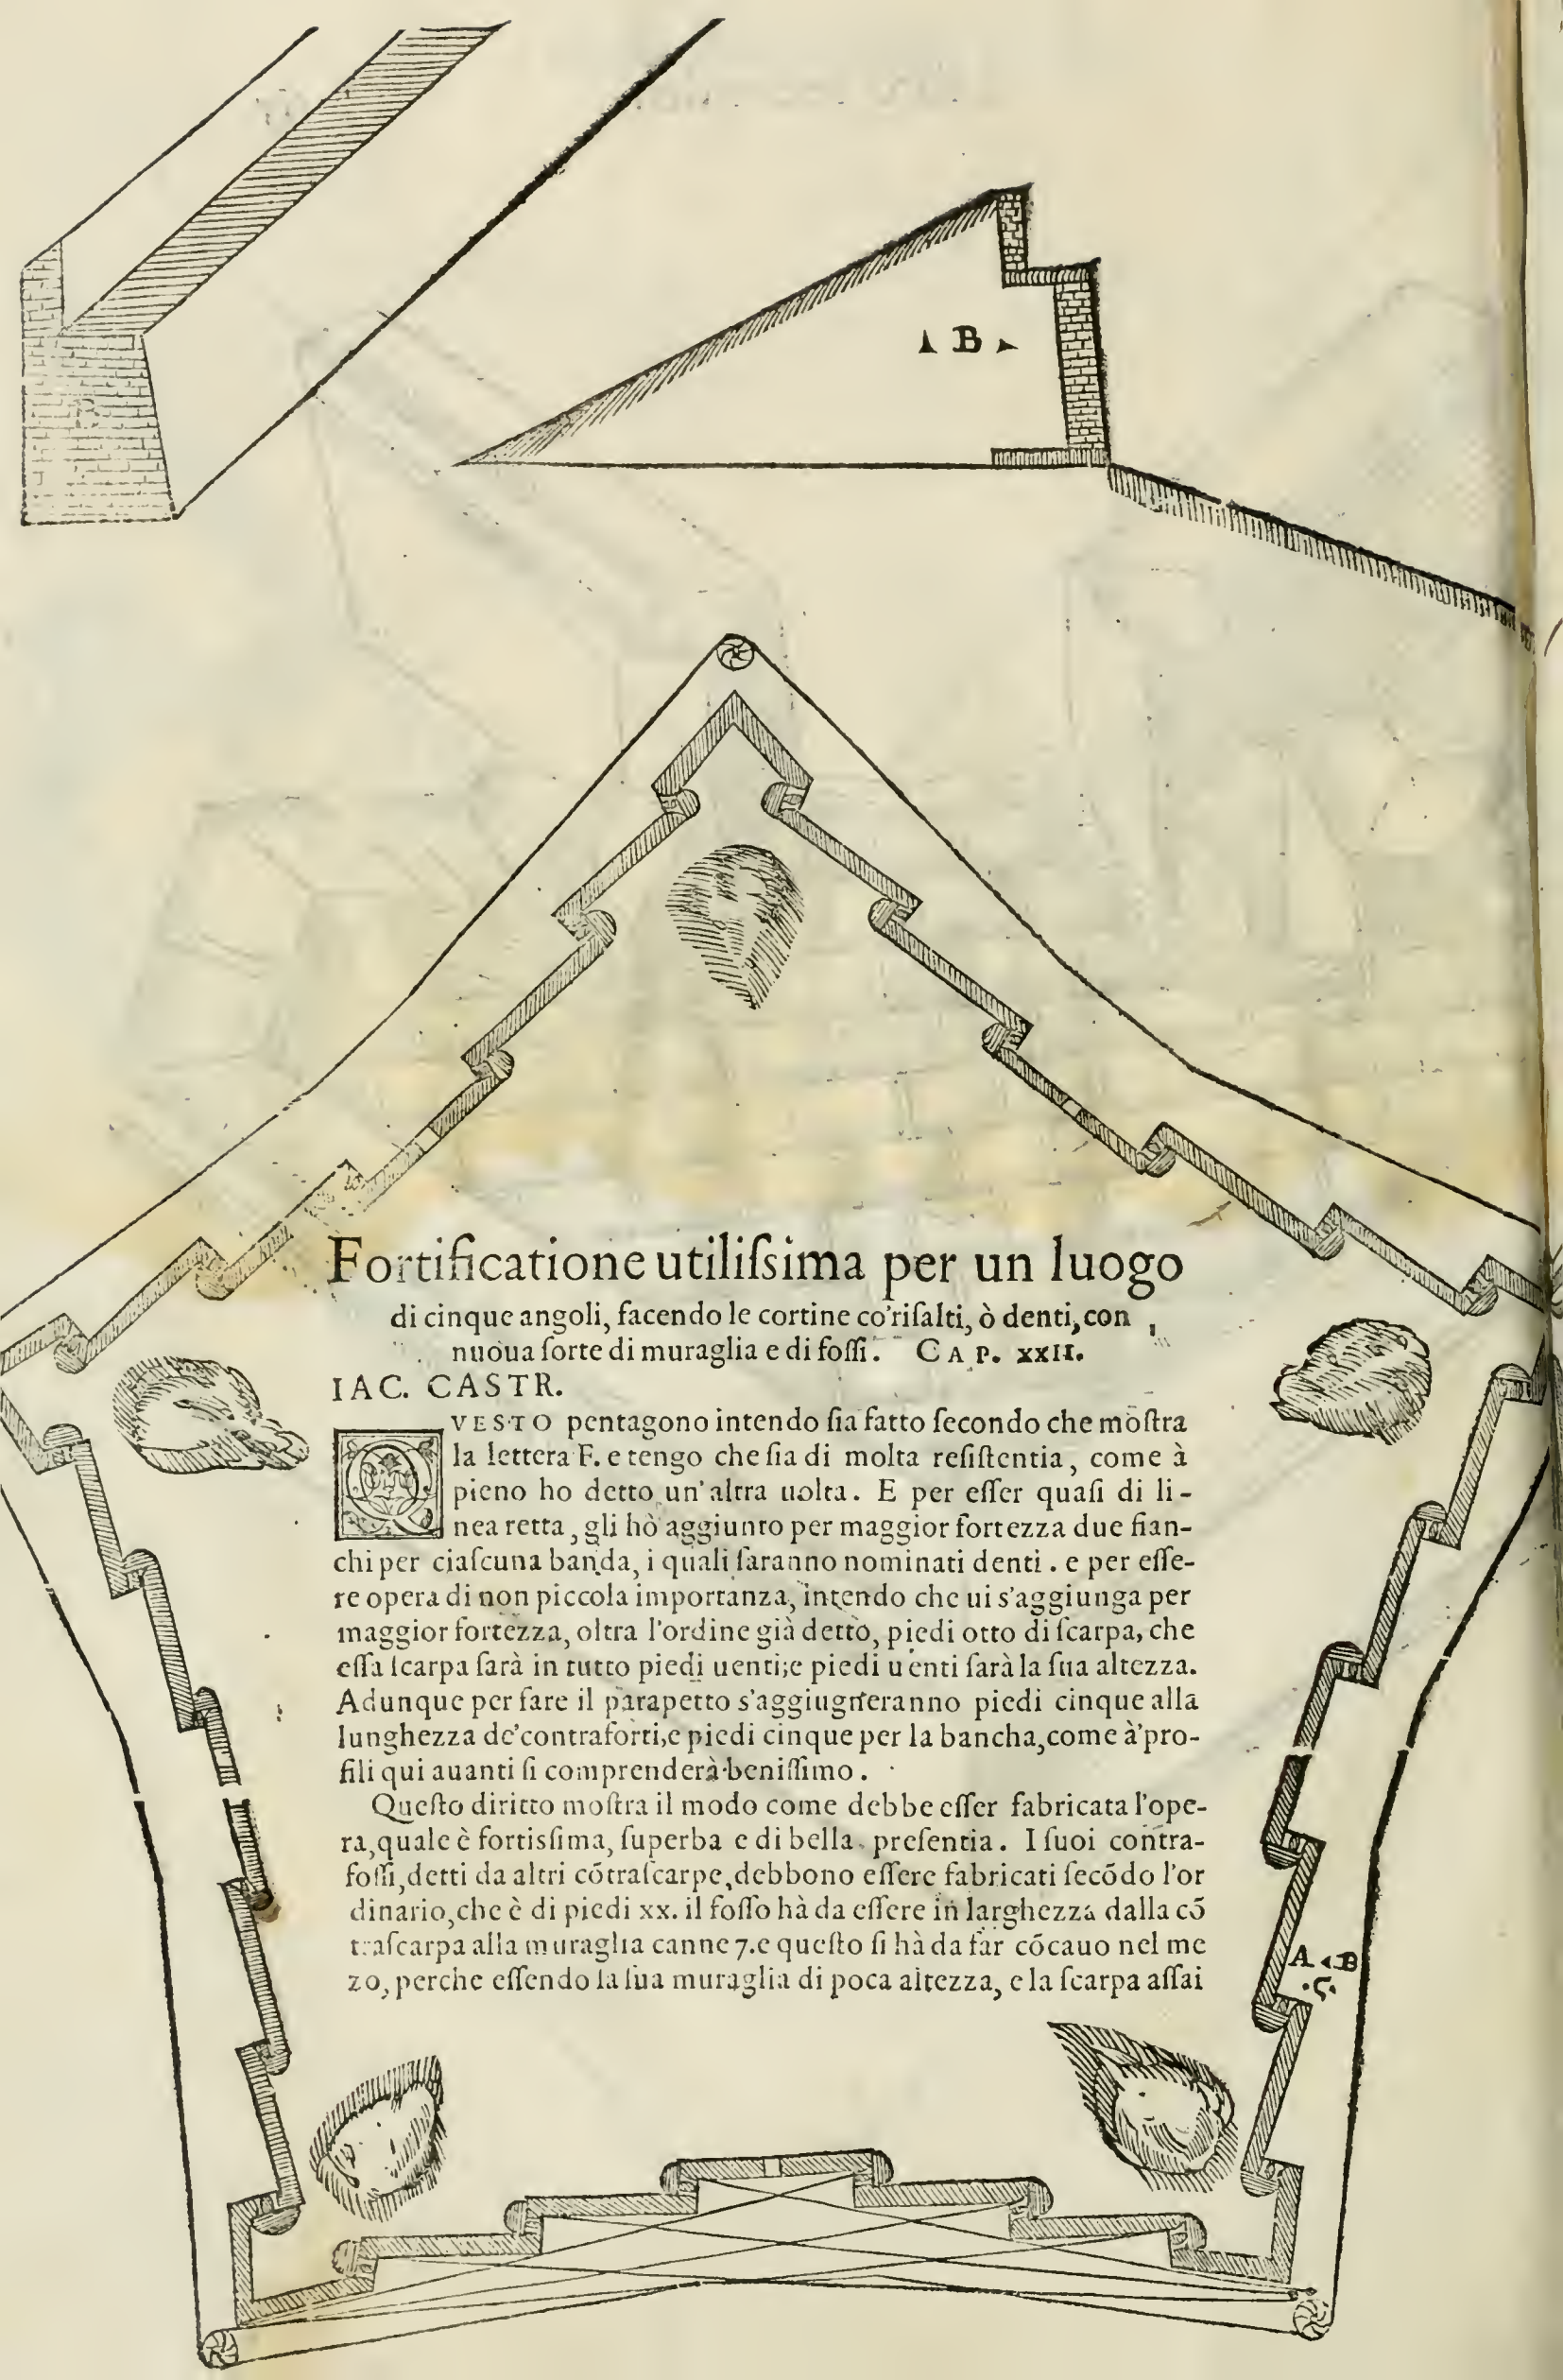 B
Fortificatione utiliſsima per un luogo
di cinque angoli, facendo le cortine co'riſalti, ò denti, con
nuoua ſorte di muraglia e di foſſi. CAP. XXII.
IAC. CASTR.
QVESTO pentagono intendo ſia fatto ſecondo che mōſtra
la lettera F. e tengo che ſia di molta reſiſtentia, come à
pieno ho detto un'altra uolta. E per eſſer quaſi di li-
nea retta, gli hò aggiunto per maggior fortezza due fian-
chi per ciaſcuna banda, i quali ſaranno nominati denti. e per eſſe-
re opera di non piccola importanza, intendo che ui s'aggiunga per
maggior fortezza, oltra l'ordine già detto, piedi otto di ſcarpa, che
eſſa ſcarpa ſarà in tutto piedi uenti; e piedi uenti ſarà la ſua altezza.
Adunque per fare il parapetto s'aggiugneranno piedi cinque alla
lunghezza de'contraforti, e piedi cinque per la bancha, come à'pro-
fili qui auanti ſi comprenderà beniſſimo.
Queſto diritto moſtra il modo come debbe eſſer fabricata l'ope-
ra, quale è fortisſima, ſuperba e di bella preſentia. I ſuoi contra-
foſſi, detti da altri cōtraſcarpe, debbono eſſere fabricati ſecōdo l'or
dinario, che è di piedi xx. il foſſo hà da eſſere in larghezza dalla cō
traſcarpa alla muraglia canne 7. e queſto ſi hà da far cōcauo nel me
zo, perche eſſendo la ſua muraglia di poca altezza, e la ſcarpa aſſai
A B